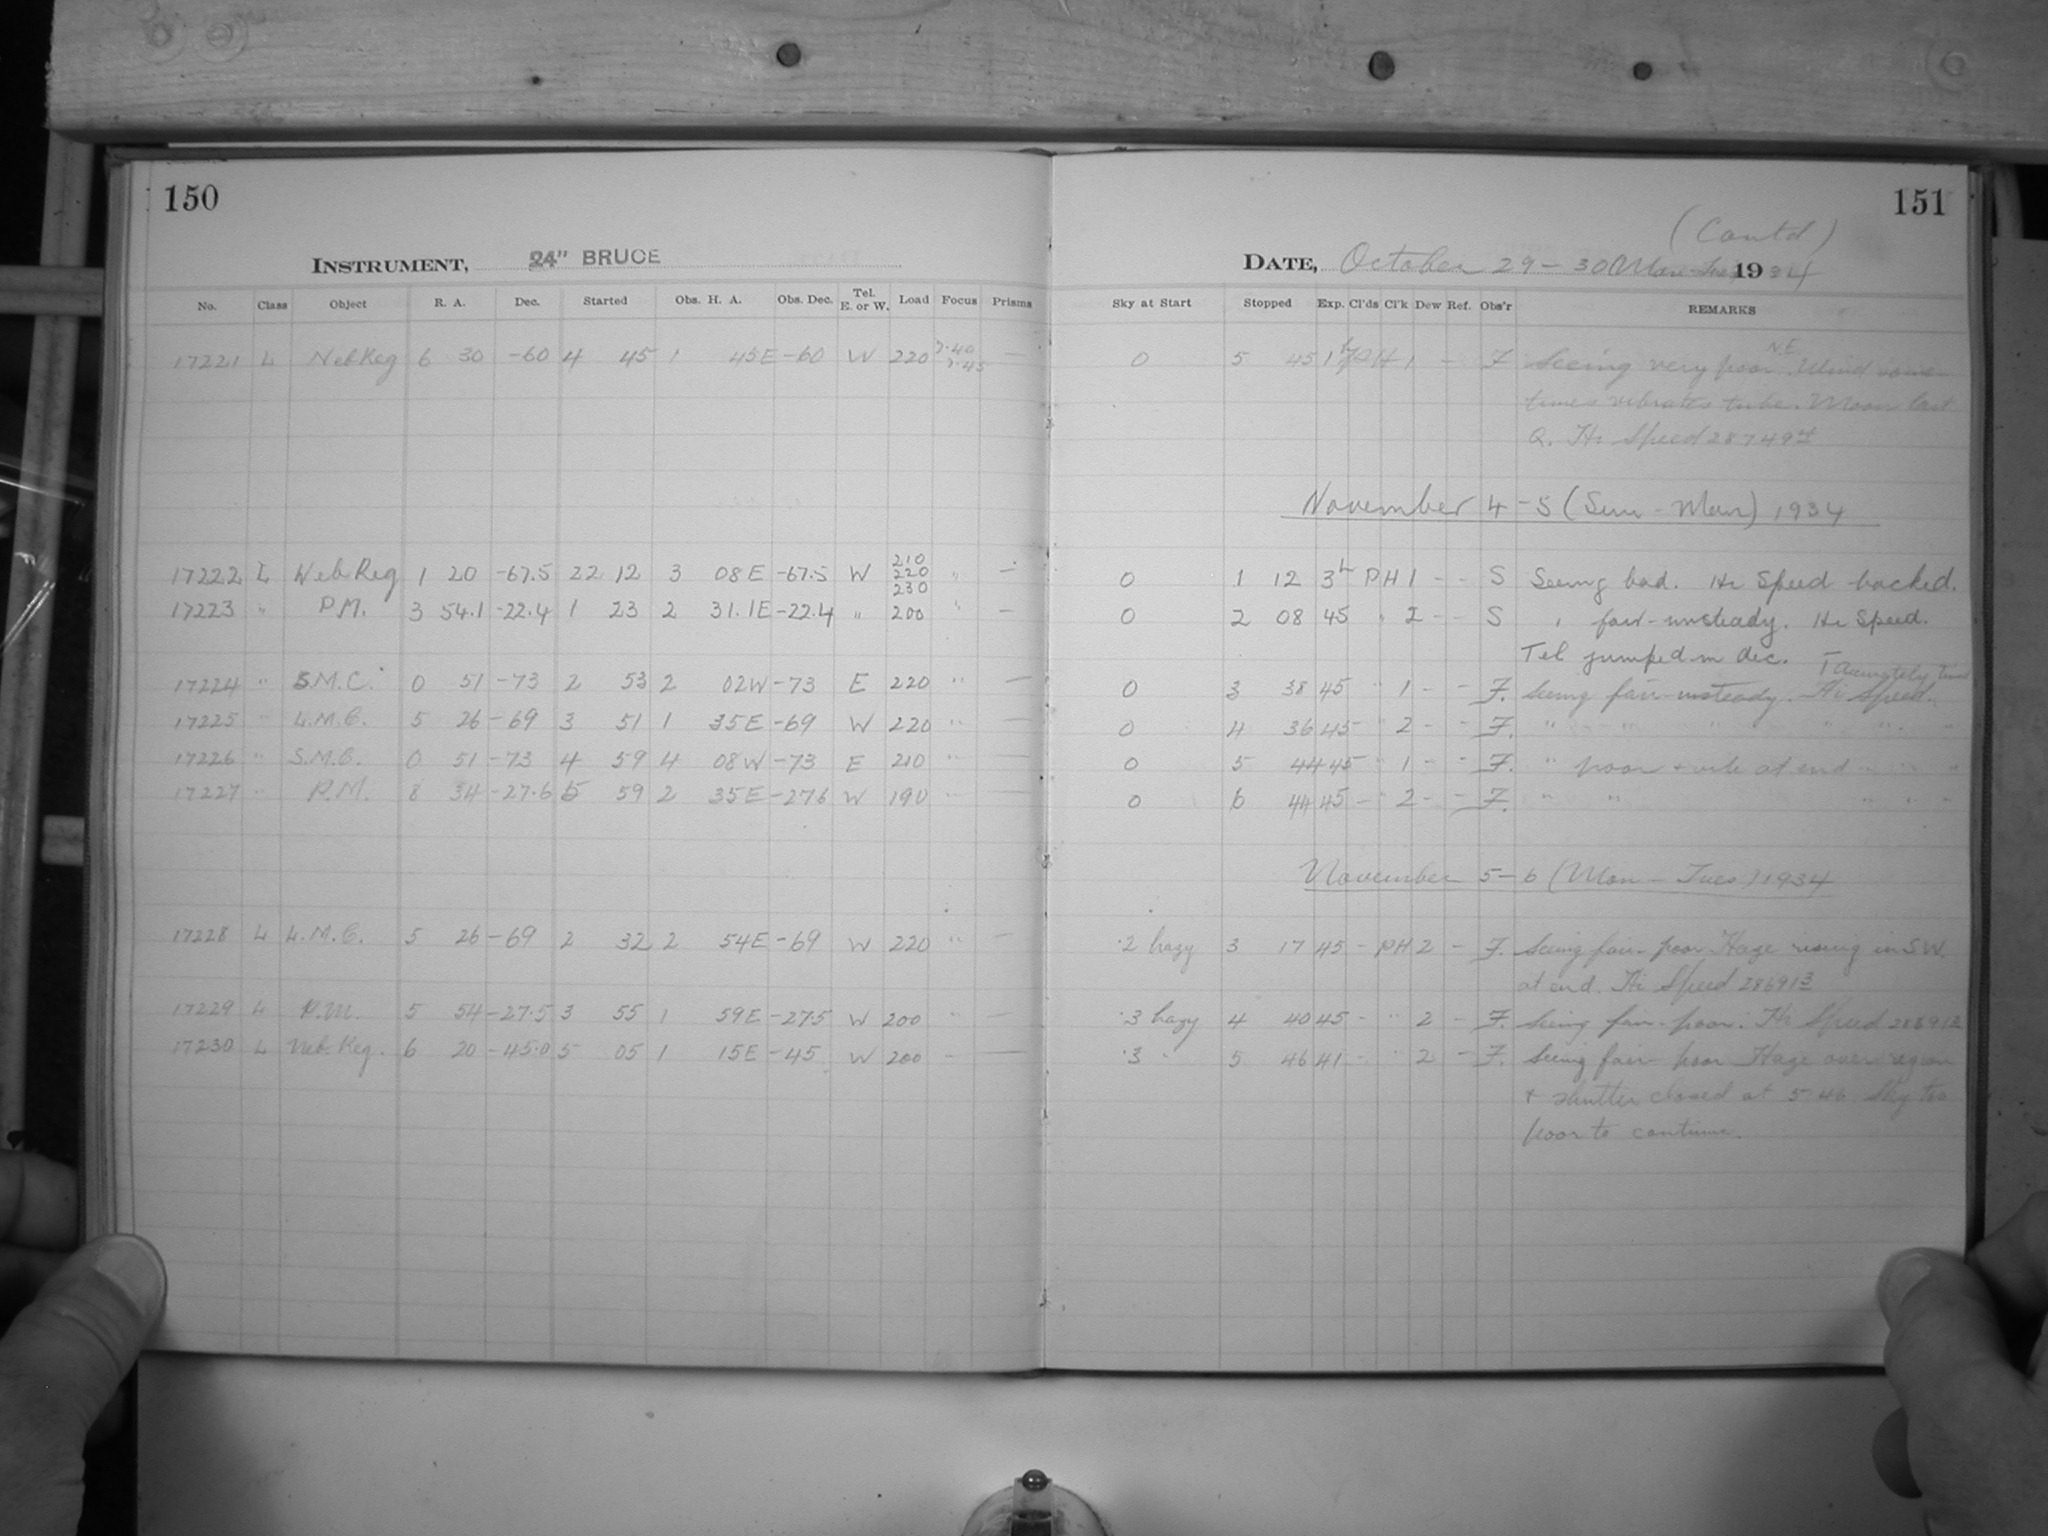 150
INSTRUMENT, 24" BRUCE
No. Class Object R. A. Dec. Started Obs. H. A. Obs. Dec. Tel. E. or W. Load Focus Prisms
17221 L Neb Reg 6 30 -60 4 45 1 45E -60 W 220 —
210
17222 L Neb Reg 1 20 -67.5 22 12 3 08E -67.5 W 220 " —
230
17223 " P.M. 3 54.1 -22.4 1 23 2 31.1E -22.4 " 200 " —
17224 " S.M.C. 0 51 -73 2 53 2 02W -73 E 220 " —
17225 " L.M.C. 5 26 -69 3 51 1 35E -69 W 220 " —
17226 " S.M.C. 0 51 -73 4 59 4 08W -73 E 210 " —
17227 " P.M. 8 34 -27.6 5 59 2 35E -27.6 W 190 " —
17228 L L.M.C. 5 26 -69 2 32 2 54E -69 W 220 " —
17229 L P.M. 5 54 -27.5 3 55 1 59E -27.5 W 200 " —
17230 L Neb. Reg. 6 20 -45.0 5 05 1 15E -45 W 200 — —
151
(Contd)
DATE, October 29-30 Mon-Tues 1934
Sky at Start Stopped Exp. Cl'ds Cl'k Dew Ref. Obs'r REMARKS
0 5 45 1h PH 1 - F Seeing very poor. N.E. Wind some-
times vibrates tube. Moon last
Q. Hi Speed 28749
November 4-5 (Sun-Mon) 1934
0 1 12 3h PH 1 - - S Seeing bad. Hi Speed backed.
0 2 08 45 " 2 - - S " fair-unsteady. Hi Speed.
Tel jumped in dec.
0 3 38 45 " 1 - - F. Seeing fair unsteady. Hi Speed.
0 4 36 45 " 2 - - F. " " " " "
0 5 44 45 " 1 - - F. " poor + vile at end " " "
0 6 44 45 - " 2 - - F. " " " " "
November 5-6 (Mon-Tues) 1934
.2 hazy 3 17 45 - PH 2 - F. Seeing fair-poor Haze rising in SW.
at end. Hi Speed 28691
.3 hazy 4 40 45 - " 2 - F. Seeing fair-poor. Hi Speed
.3 " 5 46 41 - " 2 - F. Seeing fair-poor Haze over region
+ shutter closed at 5 46 Sky too
poor to continue.